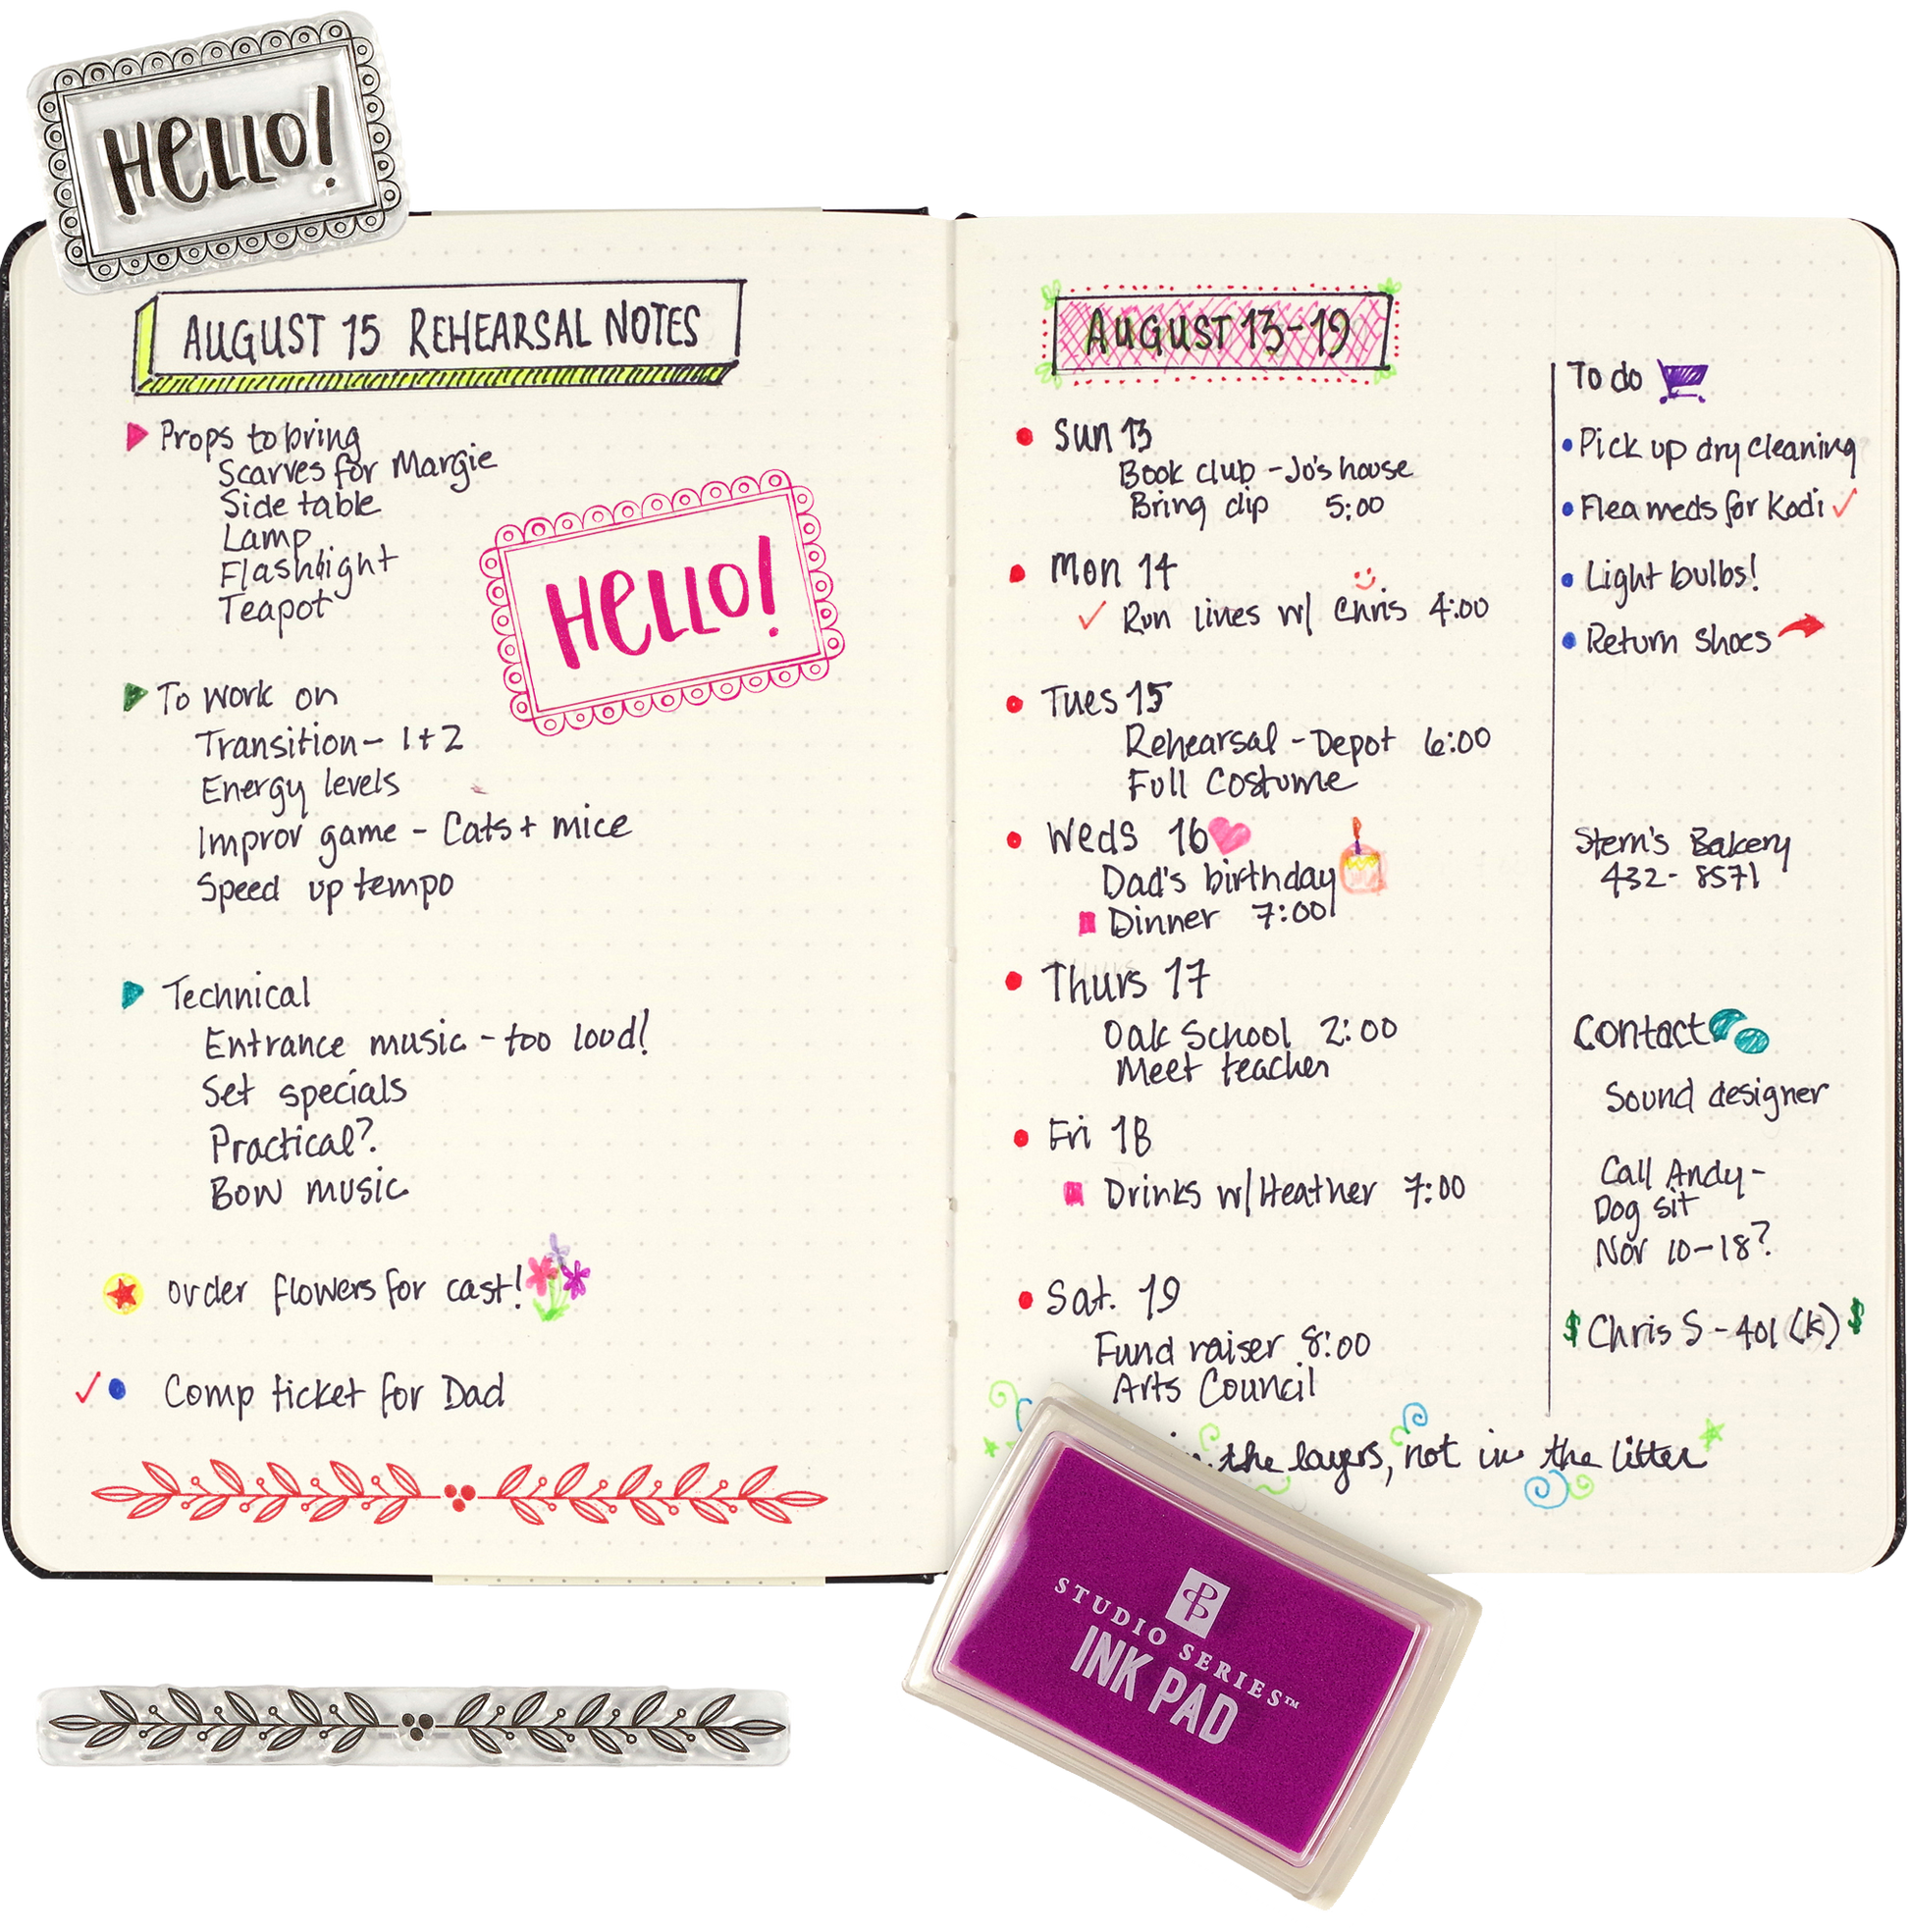 HELLO!
AUGUST 15 REHEARSAL NOTES
Props to bring
Scarves for Margie
Side table
Lamp
Flashlight
Teapot
HELLO!
To work on
Transition - 1+2
Energy levels
Improv game - Cats + mice
Speed up tempo
Technical
Entrance music - too loud!
Set specials
Practical?
Bow music
order flowers for cast!
Comp ticket for Dad
AUGUST 13-19
Sun 13
Book club - Jo's house
Bring dip 5:00
Mon 14
Run lines w/ Chris 4:00
Tues 15
Rehearsal - Depot 6:00
Full Costume
Weds 16
Dad's birthday
Dinner 7:00
Thurs 17
Oak School 2:00
Meet teacher
Fri 18
Drinks w/ Heather 7:00
Sat. 19
Fund raiser 8:00
Arts Council
in the layers, not in the litter
To do
Pick up dry cleaning
Flea meds for Kodi
Light bulbs!
Return shoes
Stern's Bakery
432-8571
Contact
Sound designer
Call Andy -
Dog sit
Nov 10-18?
$ Chris S - 401 (k) $
STUDIO SERIES™
INK PAD